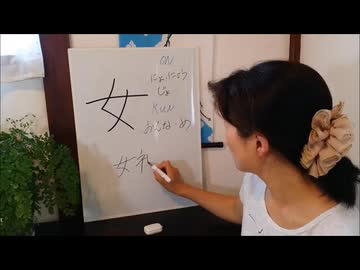 女
on
にょ・にょう
じょ
kun
おんな・め
女ネ